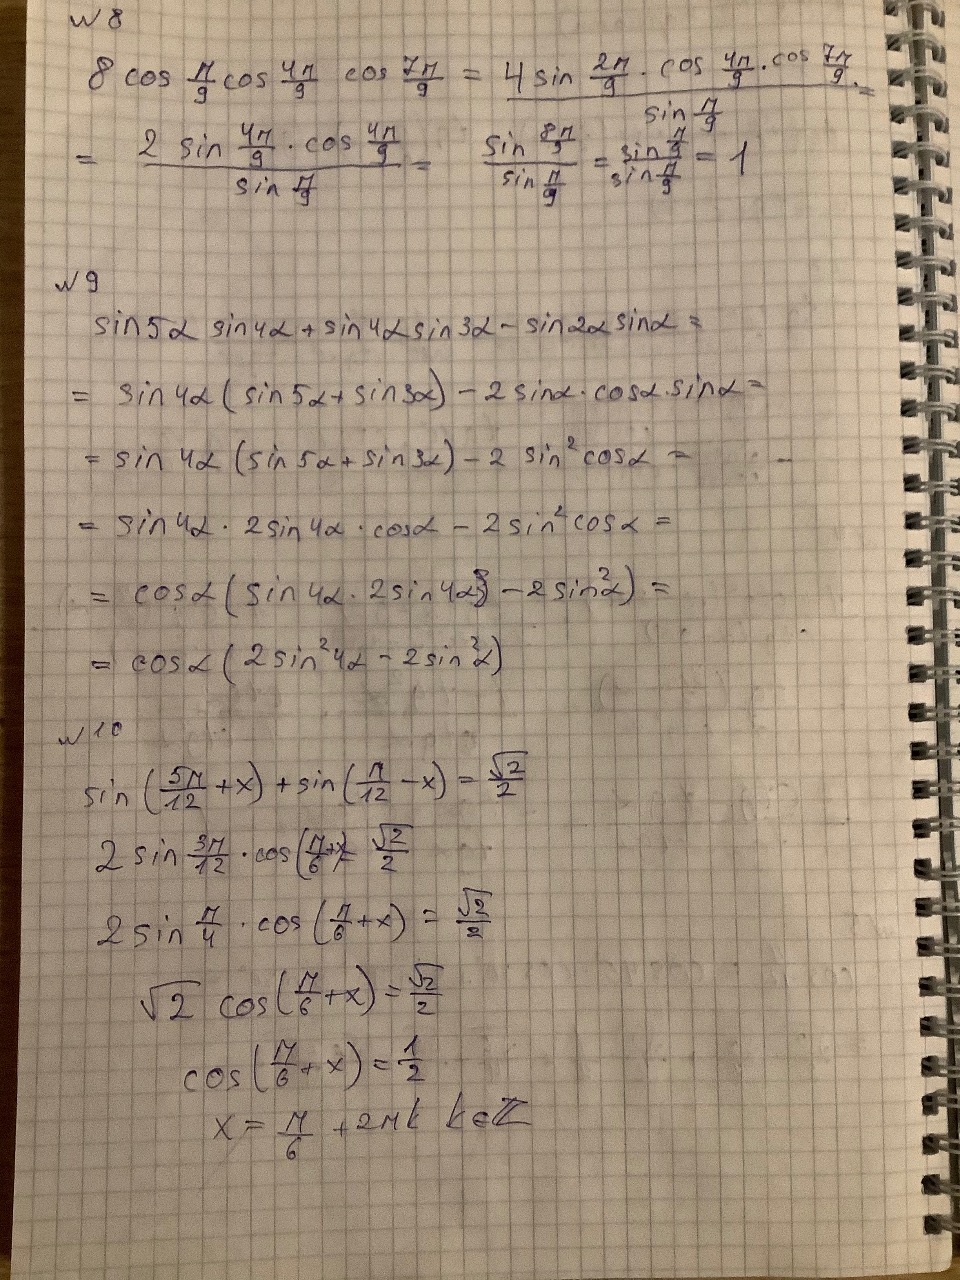 № 8
8 cos π/9 cos 4π/9 cos 7π/9 = (4 sin 2π/9 · cos 4π/9 · cos 7π/9)/(sin π/9) =
= (2 sin 4π/9 · cos 4π/9)/(sin π/9) = (sin 8π/9)/(sin π/9) = (sin π/9)/(sin π/9) = 1
№ 9
sin5α sin4α + sin4α sin3α - sin2α sinα =
= sin4α (sin5α + sin3α) - 2 sinα · cosα · sinα =
= sin4α (sin5α + sin3α) - 2 sin² cosα =
= sin4α · 2sin4α · cosα - 2sin² cosα =
= cosα (sin4α · 2sin4α) - 2sin²α) =
= cosα (2sin²4α - 2sin²α)
№ 10
sin (5π/12 + x) + sin (π/12 - x) = √2/2
2 sin 3π/12 · cos (π/6 + x) = √2/2
2 sin π/4 · cos (π/6 + x) = √2/2
√2 cos (π/6 + x) = √2/2
cos (π/6 + x) = 1/2
x = π/6 + 2πk k∈Z